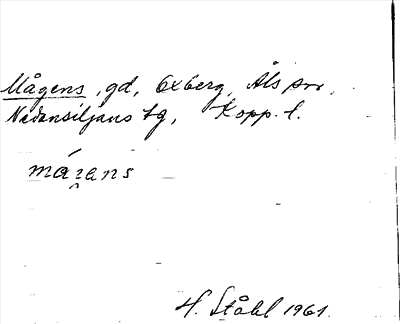 Mågens, gd, Oxberg, Åls sn,
Nedansiljans tg, Kopp. l.
mágans
H. Ståhl 1961.